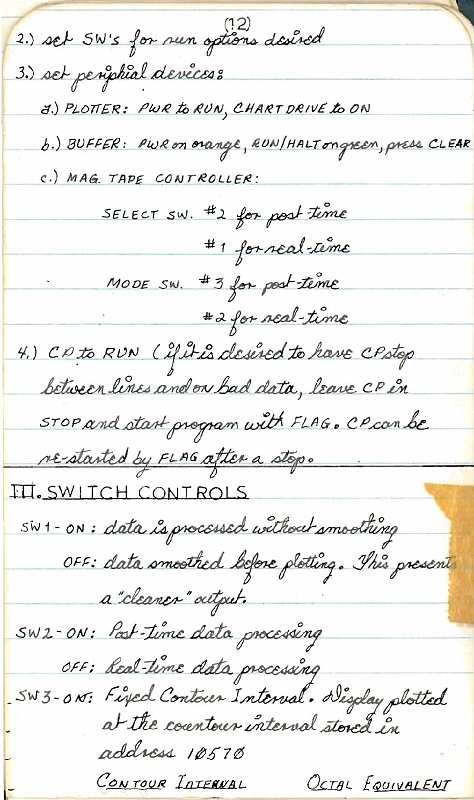 (12)
2.) set SW's for run options desired
3.) set periphial devices:
a.) PLOTTER: PWR to RUN, CHART DRIVE to ON
b.) BUFFER: PWR on orange, RUN/HALT on green, press CLEAR
c.) MAG. TAPE CONTROLLER:
SELECT SW. #2 for post-time
#1 for real-time
MODE SW. #3 for post-time
#2 for real-time
4.) CP to RUN (if it is desired to have CP stop
between lines and on bad data, leave CP in
STOP and start program with FLAG. CP can be
re-started by FLAG after a stop.
III. SWITCH CONTROLS
SW1-ON: data is processed without smoothing
OFF: data smoothed before plotting. This presents
a "cleaner" output.
SW2-ON: Post-time data processing
OFF: Real-time data processing
SW3-ON: Fixed Contour Interval. Display plotted
at the countour interval stored in
address 10570
CONTOUR INTERNAL OCTAL EQUIVALENT